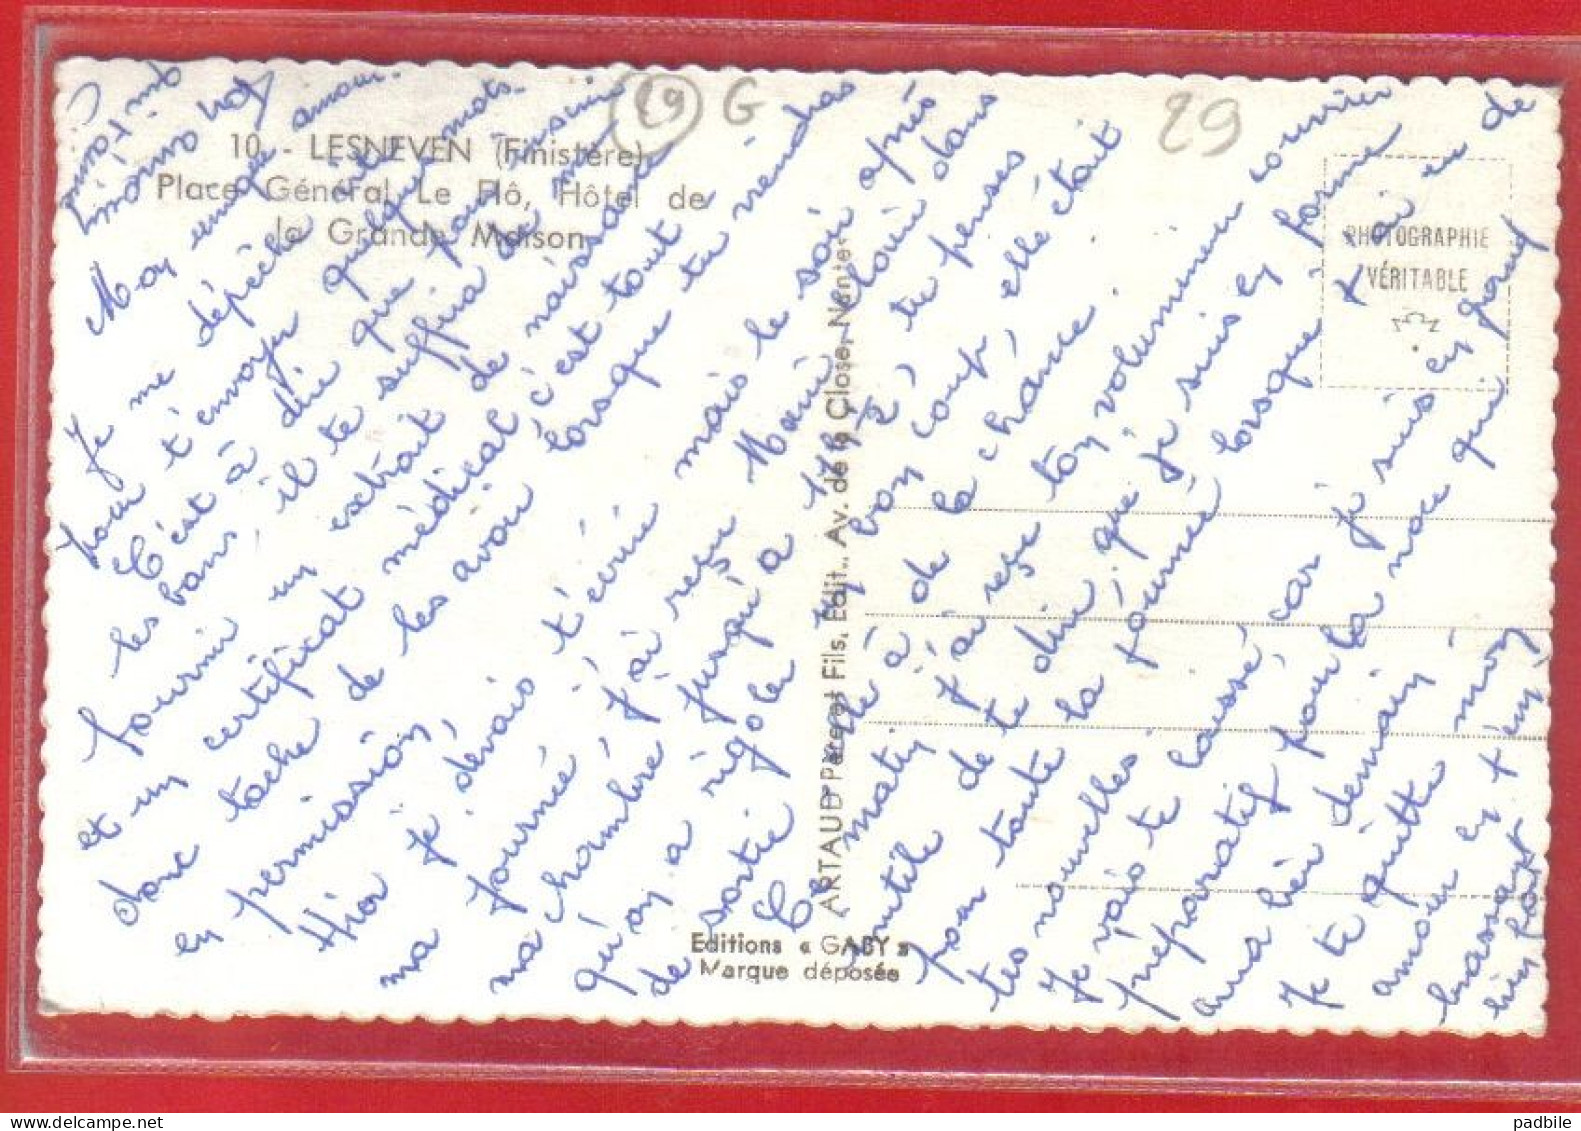 29 G
29
10. - LESNEVEN (Finistère)
Place Général Le Flô, Hôtel de
la Grande Maison
PHOTOGRAPHIE
VÉRITABLE
ARTAUD Père et Fils, Édit., Av. de la Close, Nantes
Editions « GABY »
Marque déposée
Mon unique amour.
Je me dépêche de
pour t'envoyer quelques mots.
C'est à dire que pour
les bans, il te suffira de
fournir un extrait de naissance
et un certificat médical c'est tout
donc tache de les avoir lorsque tu viendras
en permission,
Hier je devais t'écrire mais le soir après
ma journée, j'ai reçu Marie-Louise dans
ma chambre jusqu'à 11h½, tu penses
qu'on a rigoler mon coup, elle était
de sortie elle a de la chance.
Ce matin j'ai reçu ton volumineux courrier
inutile de te dire, que je suis en forme
pour toute la journée lorsque j'ai de
tes nouvelles.
Je vais te laisser, car je suis en grand
préparatif pour la noce qui
aura lieu demain.
Je te quitte mon
amour en t'en
brassant
bien fort
Ton amour
qui t'aime